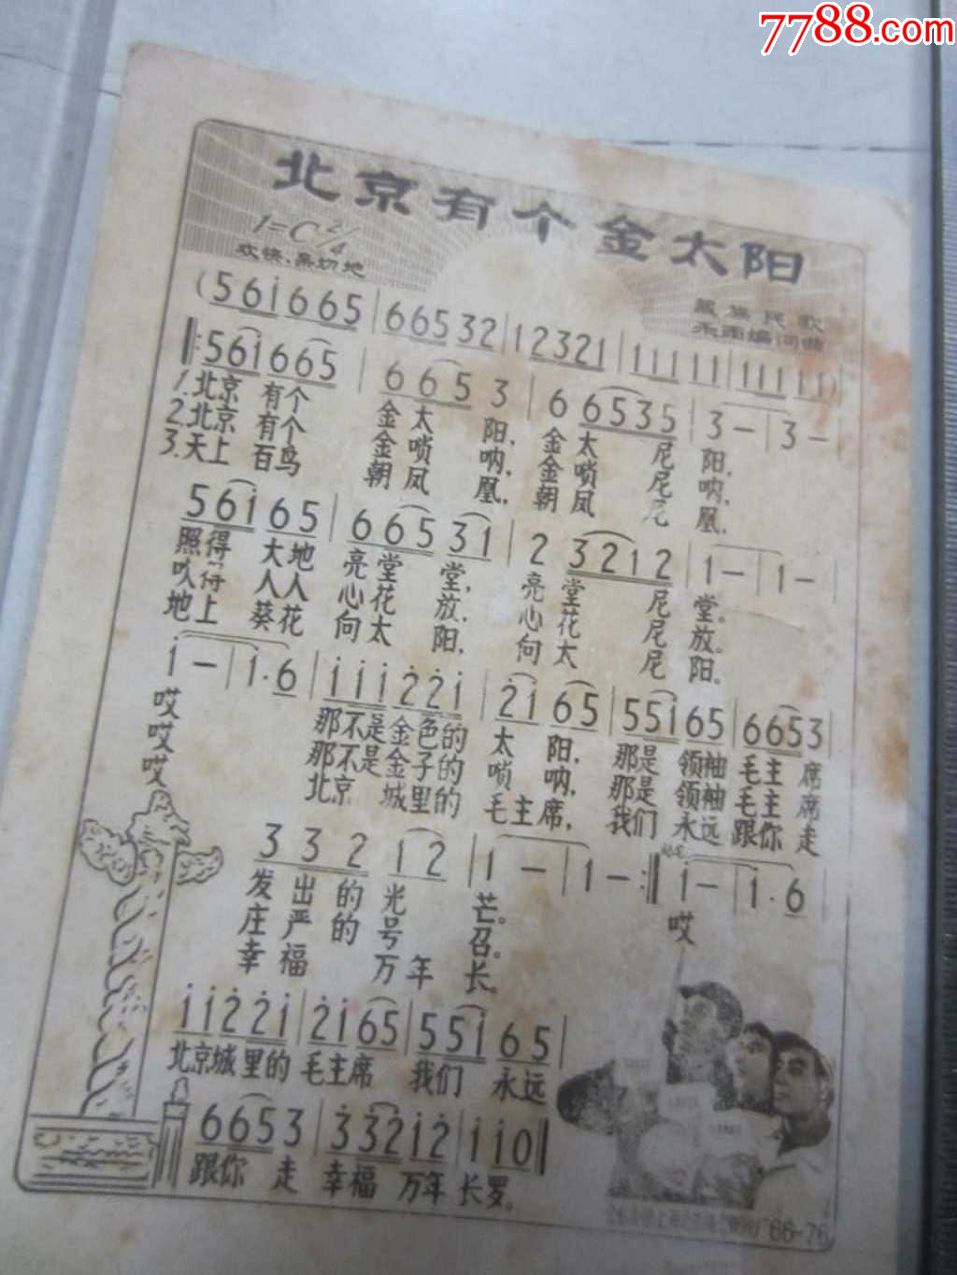 7788.com
北京有个金太阳
1=C 2/4
欢快、亲切地
藏族民歌
禾雨编词曲
(5 6 i 6 6 5 | 6 6 5 3 2 | 1 2 3 2 1 | 1 1 1 1 1 | 1 1 1 1 1)
‖: 5 6 i 6 6 5 | 6 6 5 3 | 6 6 5 3 5 | 3 — | 3 —
1.北京 有个 金太 阳, 金太 尼 阳,
2.北京 有个 金唢 呐, 金唢 尼 呐,
3.天上 百鸟 朝凤 凰, 朝凤 尼 凰,
5 6 i 6 5 | 6 6 5 3 1 | 2 3 2 1 2 | 1 — | 1 —
照得 大地 亮堂 堂, 亮堂 尼 堂。
吹得 人人 心花 放, 心花 尼 放。
地上 葵花 向太 阳, 向太 尼 阳。
i — | i · 6 | i i i 2 2 i | 2 i 6 5 | 5 5 i 6 5 | 6 6 5 3
哎 那不是金色的 太 阳, 那是 领袖 毛主 席
哎 那不是金子的 唢 呐, 那是 领袖 毛主 席
哎 北京 城里的 毛主席, 我们 永远 跟你 走
3 3 2 1 2 | 1 — | 1 — :‖ i — | i · 6
发出的 光 芒。 哎
庄严的 号 召。
幸福 万年 长。
i i 2 2 i | 2 i 6 5 | 5 5 i 6 5
北京城里的 毛主席 我们 永远
6 6 5 3 | 3 3 2 i 2 | i i 0 ‖
跟你 走 幸福 万年 长罗。
66-76